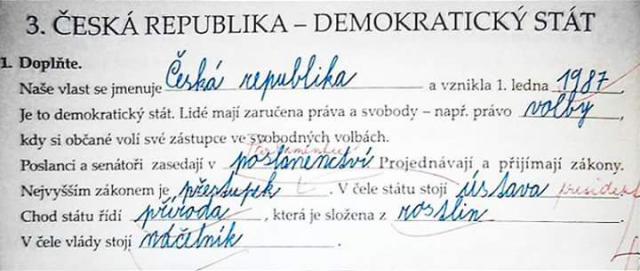 3. ČESKÁ REPUBLIKA – DEMOKRATICKÝ STÁT
1. Doplňte.
Naše vlast se jmenuje Česká republika a vznikla 1. ledna 1987.
Je to demokratický stát. Lidé mají zaručena práva a svobody – např. právo volby,
kdy si občané volí své zástupce ve svobodných volbách.
Poslanci a senátoři zasedají v poslanenctví Projednávají a přijímají zákony.
Nejvyšším zákonem je přestupek. V čele státu stojí ústava president
Chod státu řídí příroda, která je složena z rostlin.
V čele vlády stojí náčelník.
4